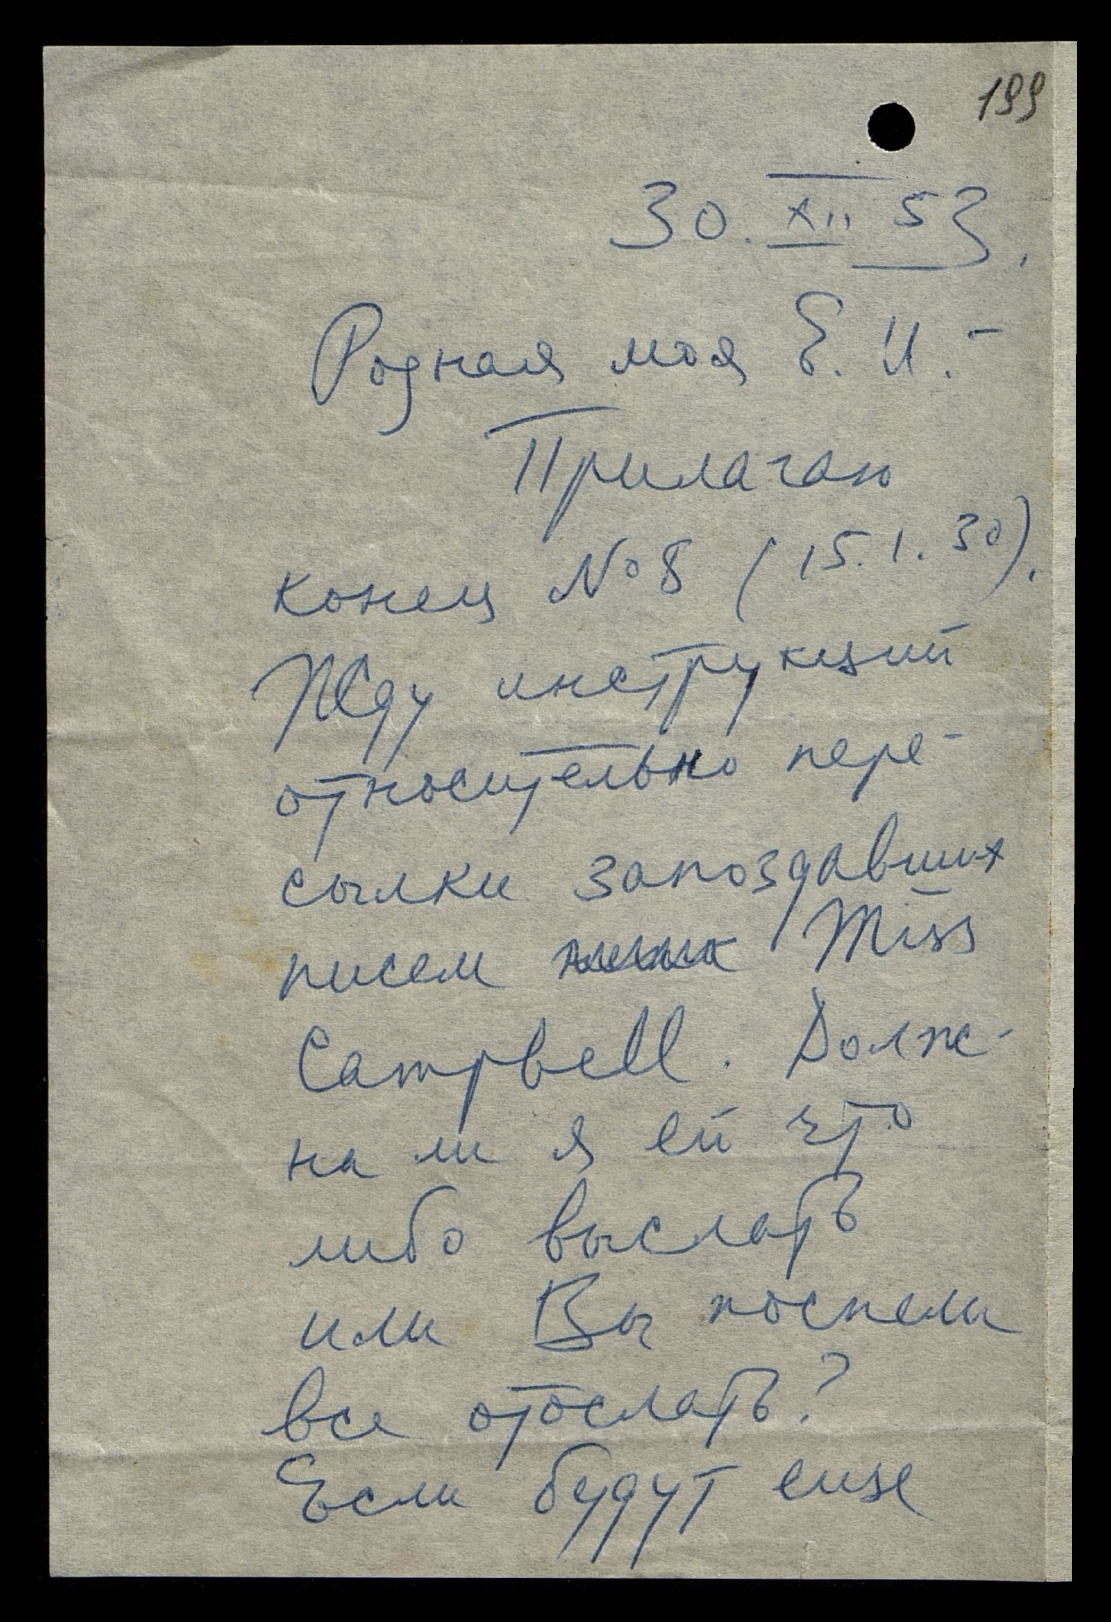 199
30. XII 53.
Родная моя Е. И. -
Прилагаю
конец №8 (15.1.30).
Жду инструкций
относительно пере-
сылки запоздавших
писем Miss
Campbell. Долж-
на ли я ей что
либо выслать
или Вы поспели
все отослать?
Если будут еще